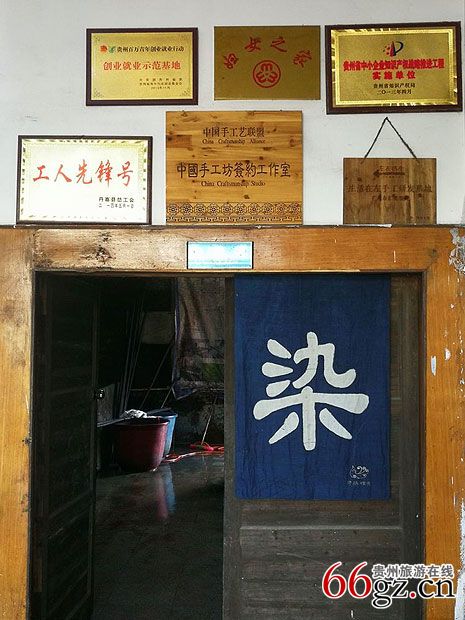 贵州百万青年创业就业行动
创业就业示范基地
妇女之家
贵州省中小企业知识产权战略推进工程
实施单位
贵州省知识产权局
二〇一三年四月
工人先锋号
丹寨县总工会
二〇一四年五月一日
中国手工艺联盟
China Craftsmanship Alliance
中國手工坊簽約工作室
China Craftsmanship Studio
染
贵州旅游在线
66gz.cn